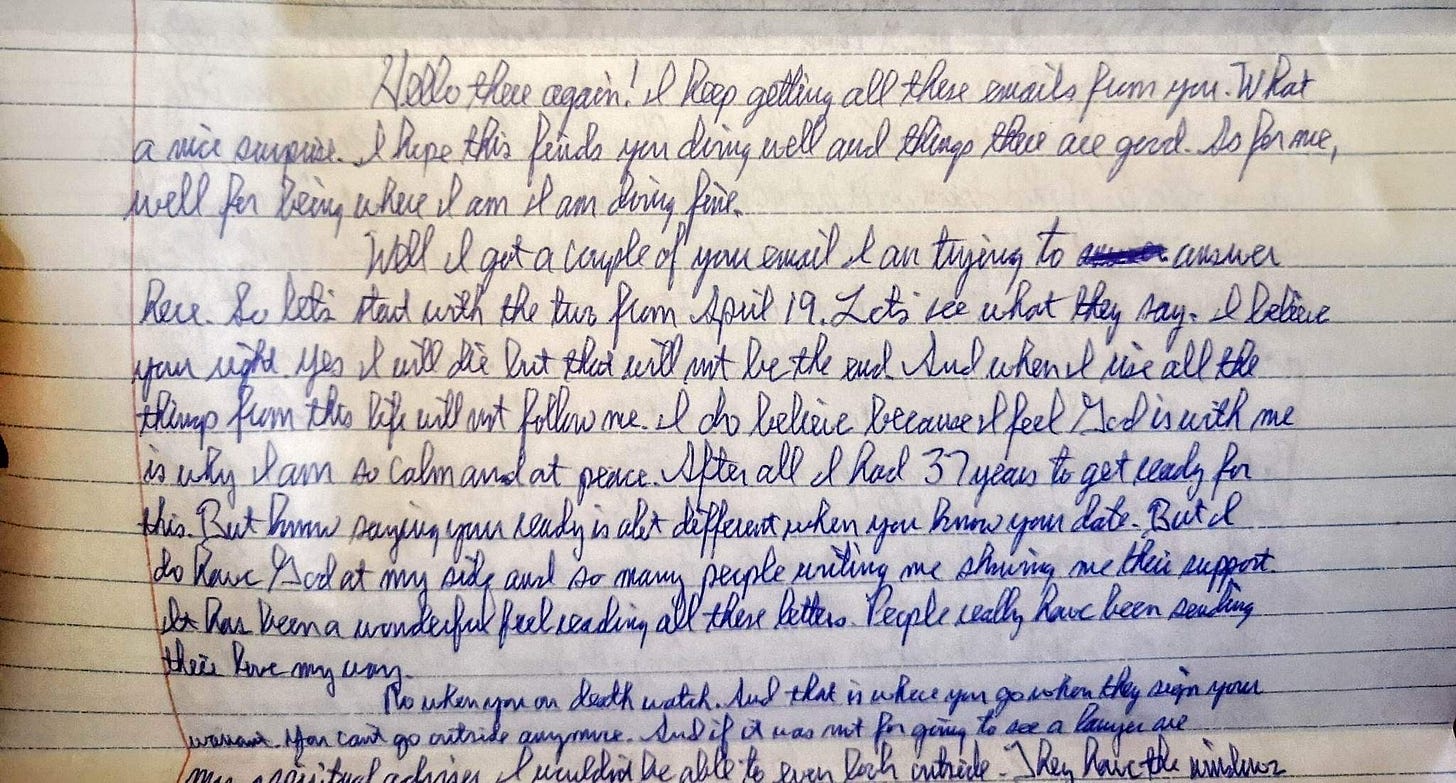 Hello there again! I keep getting all these emails from you. What
a nice surprise. I hope this finds you doing well and things there are good. As for me,
well for being where I am I am doing fine.
Well I got a couple of your email I am trying to answer
here. So let's start with the two from April 19. Let's see what they say. I believe
your right. Yes I will die but that will not be the end. And when I rise all the
things from this life will not follow me. I do believe because I feel God is with me
is why I am so calm and at peace. After all I had 37 years to get ready for
this. But know saying your ready is alot different when you know your date. But I
do have God at my side and so many people writing me showing me their support.
It has been a wonderful feel reading all these letters. People really have been sending
their love my way.
No when you on death watch. And that is where you go when they sign your
warrant. You can't go outside anymore. And if it was not for going to see a lawyer are
my spiritual adviser I wouldn't be able to even look outside. They have the windows